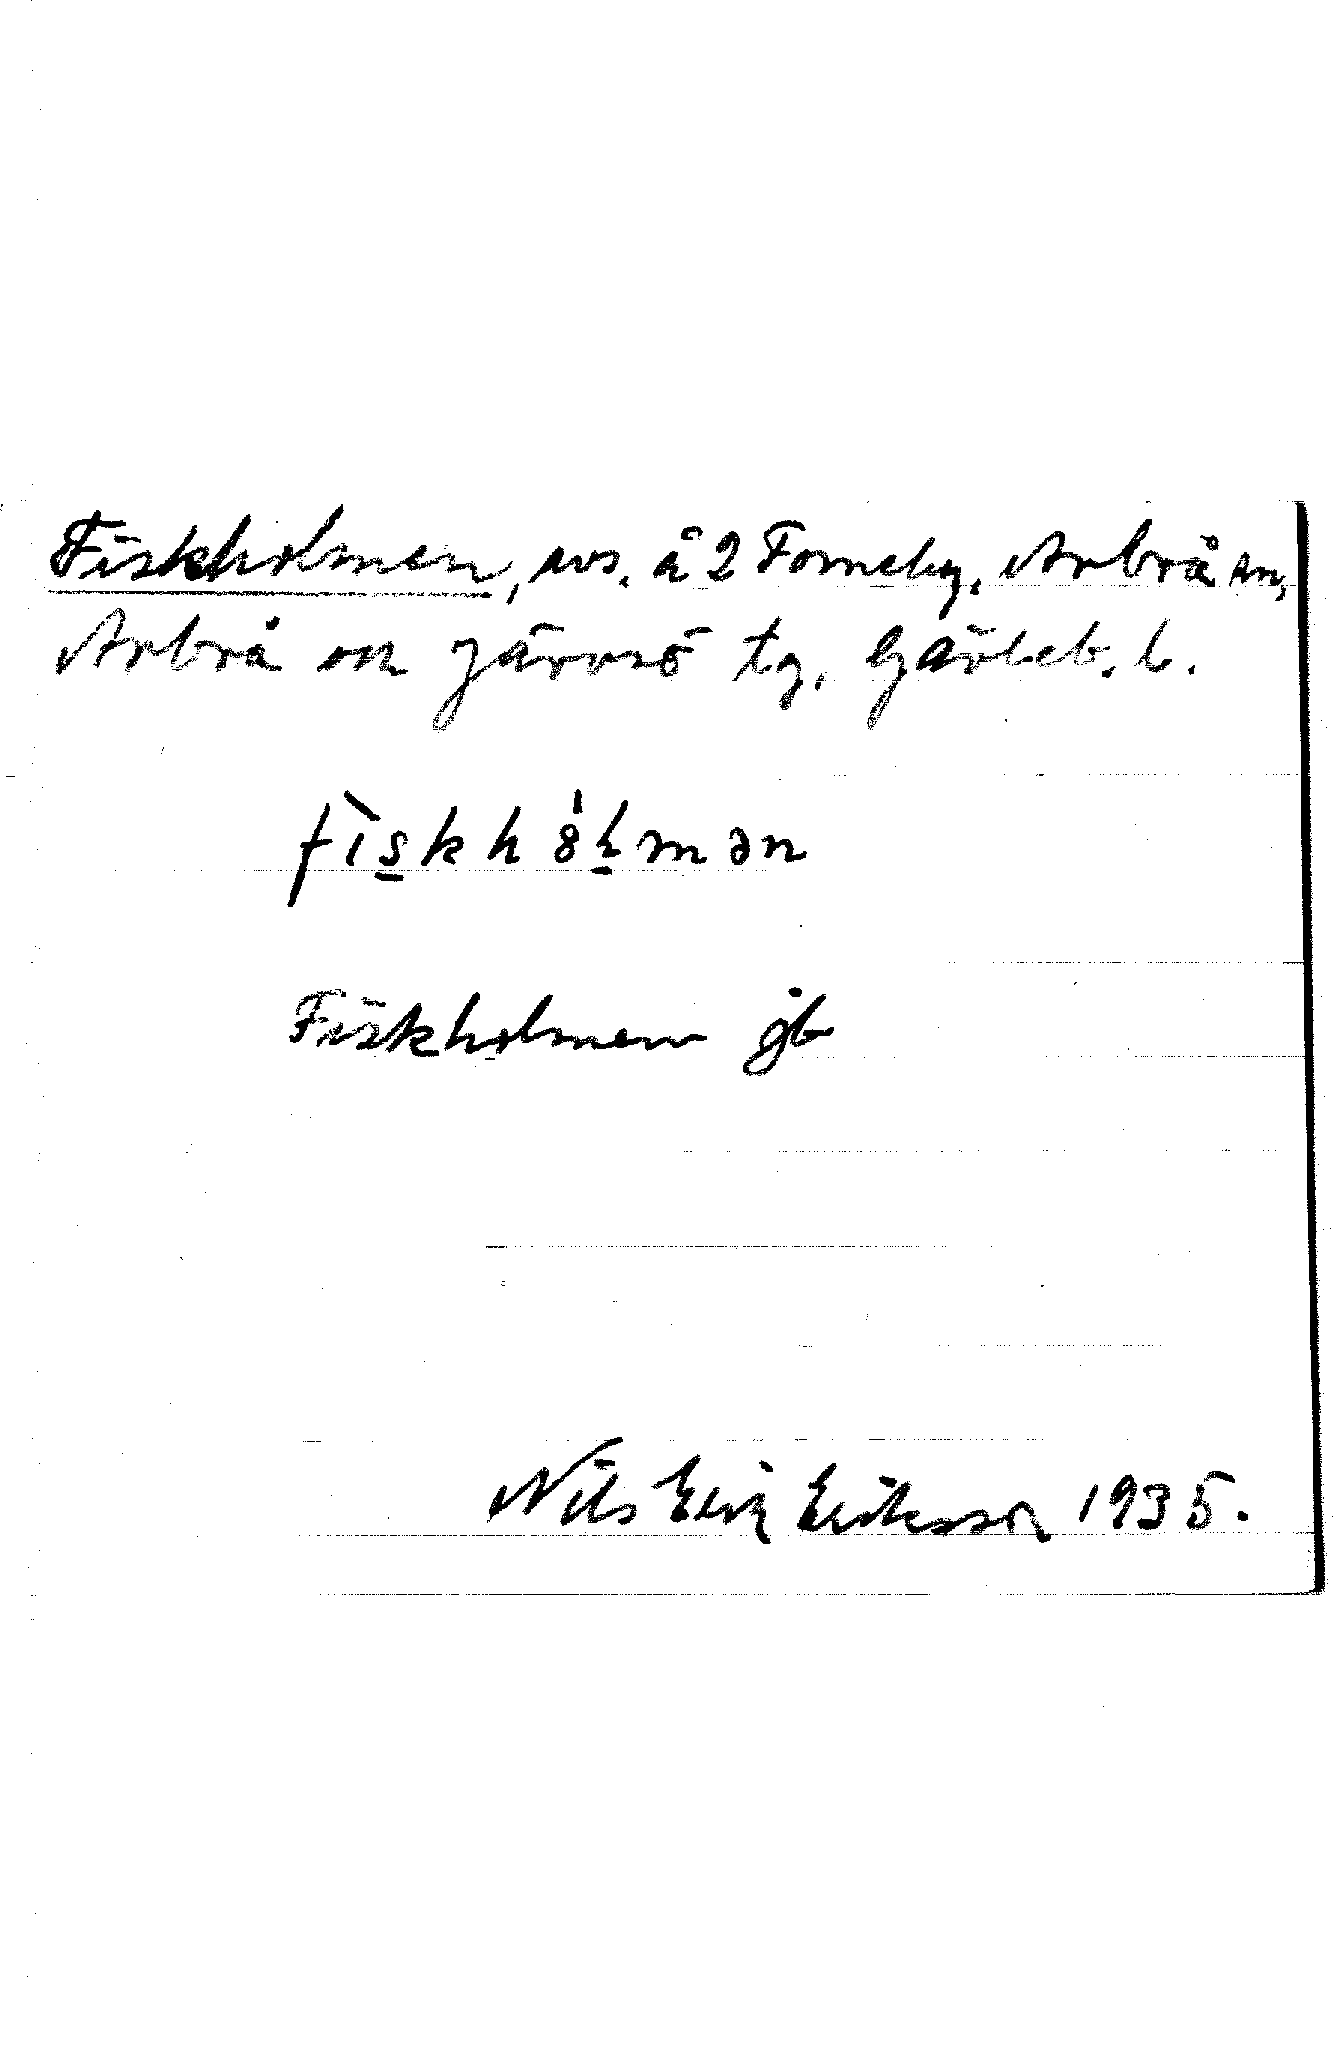 Fiskholmen, avs. å 2 Forneby, Arbrå sn,
Arbrå och Järvsö tg, Gävleb. l.
fìskhȯlmən
Fiskholmen jb
Nils Erik Eriksson 1935.